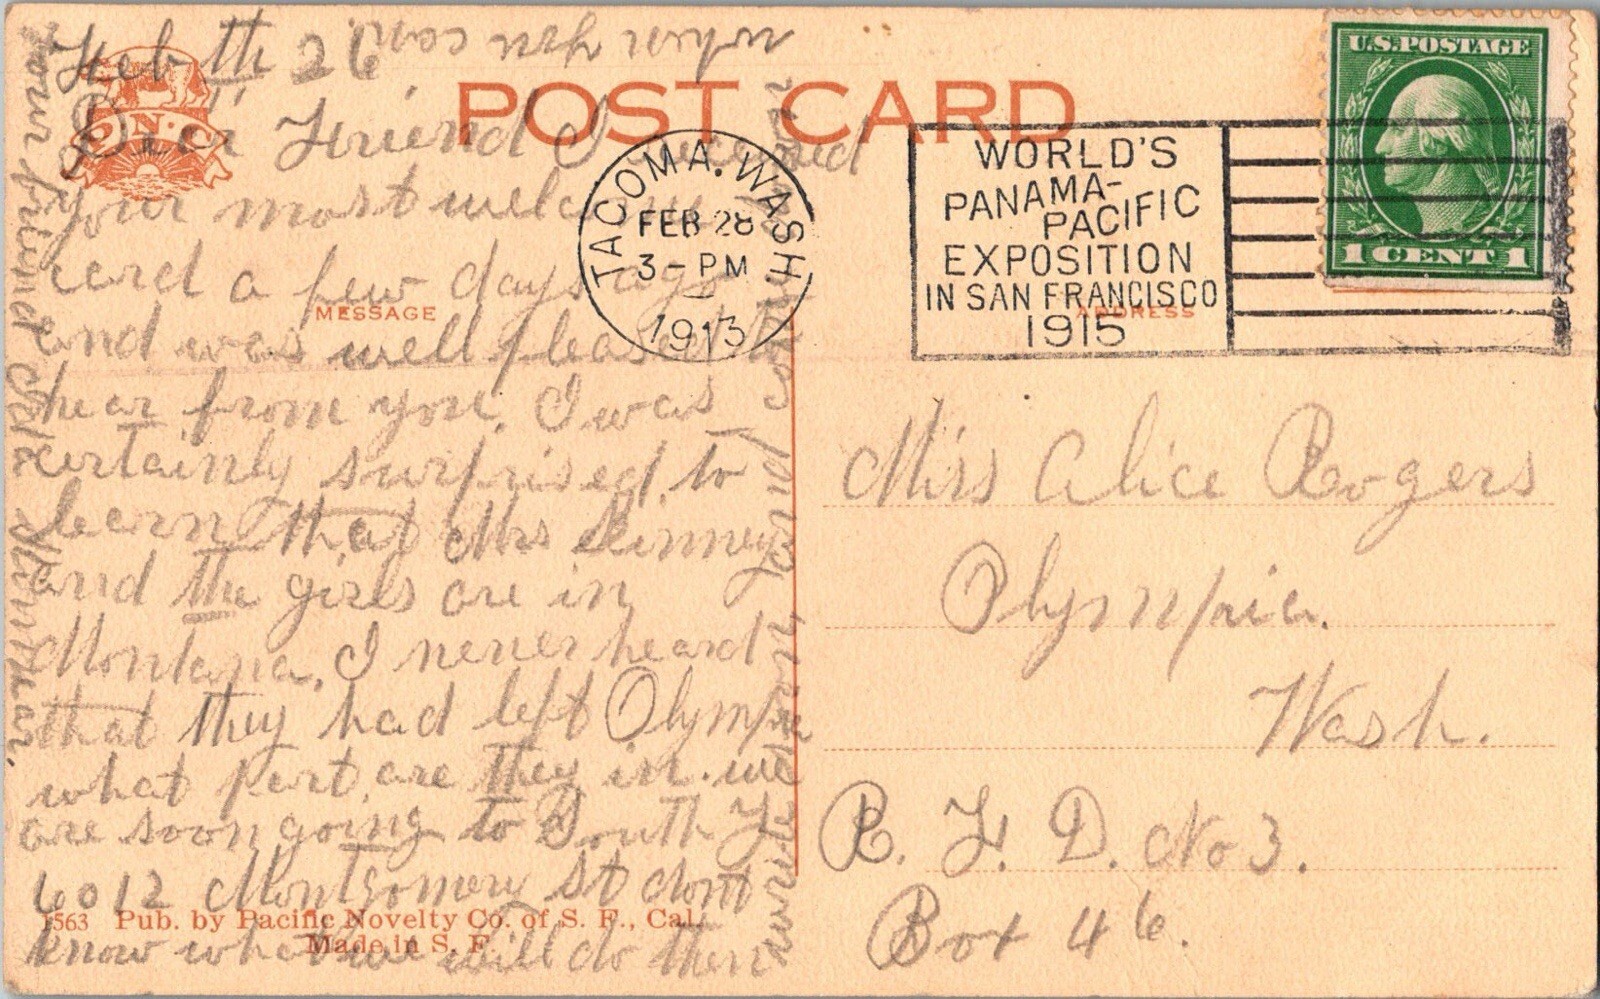 Feb th 26
Dear Friend I received
your most welcome
card a few days ago
and was well pleased to
hear from you. I was
certainly surprised to
learn that Mrs Kinney
and the girls are in
Montana. I never heard
that they had left Olympia
what part are they in. we
are soon going to South
6012 Montgomery St dont
know what we will do then
when you can
your friend
P.N.C.
POST CARD
MESSAGE
ADDRESS
TACOMA. WASH.
FEB 28
3-PM
1913
WORLD'S
PANAMA-
PACIFIC
EXPOSITION
IN SAN FRANCISCO
1915
U.S. POSTAGE
1 CENT 1
Miss Alice Rogers
Olympia.
Wash.
R. F. D. No 3.
Box 46.
1563 Pub. by Pacific Novelty Co. of S. F., Cal.
Made in S. F.